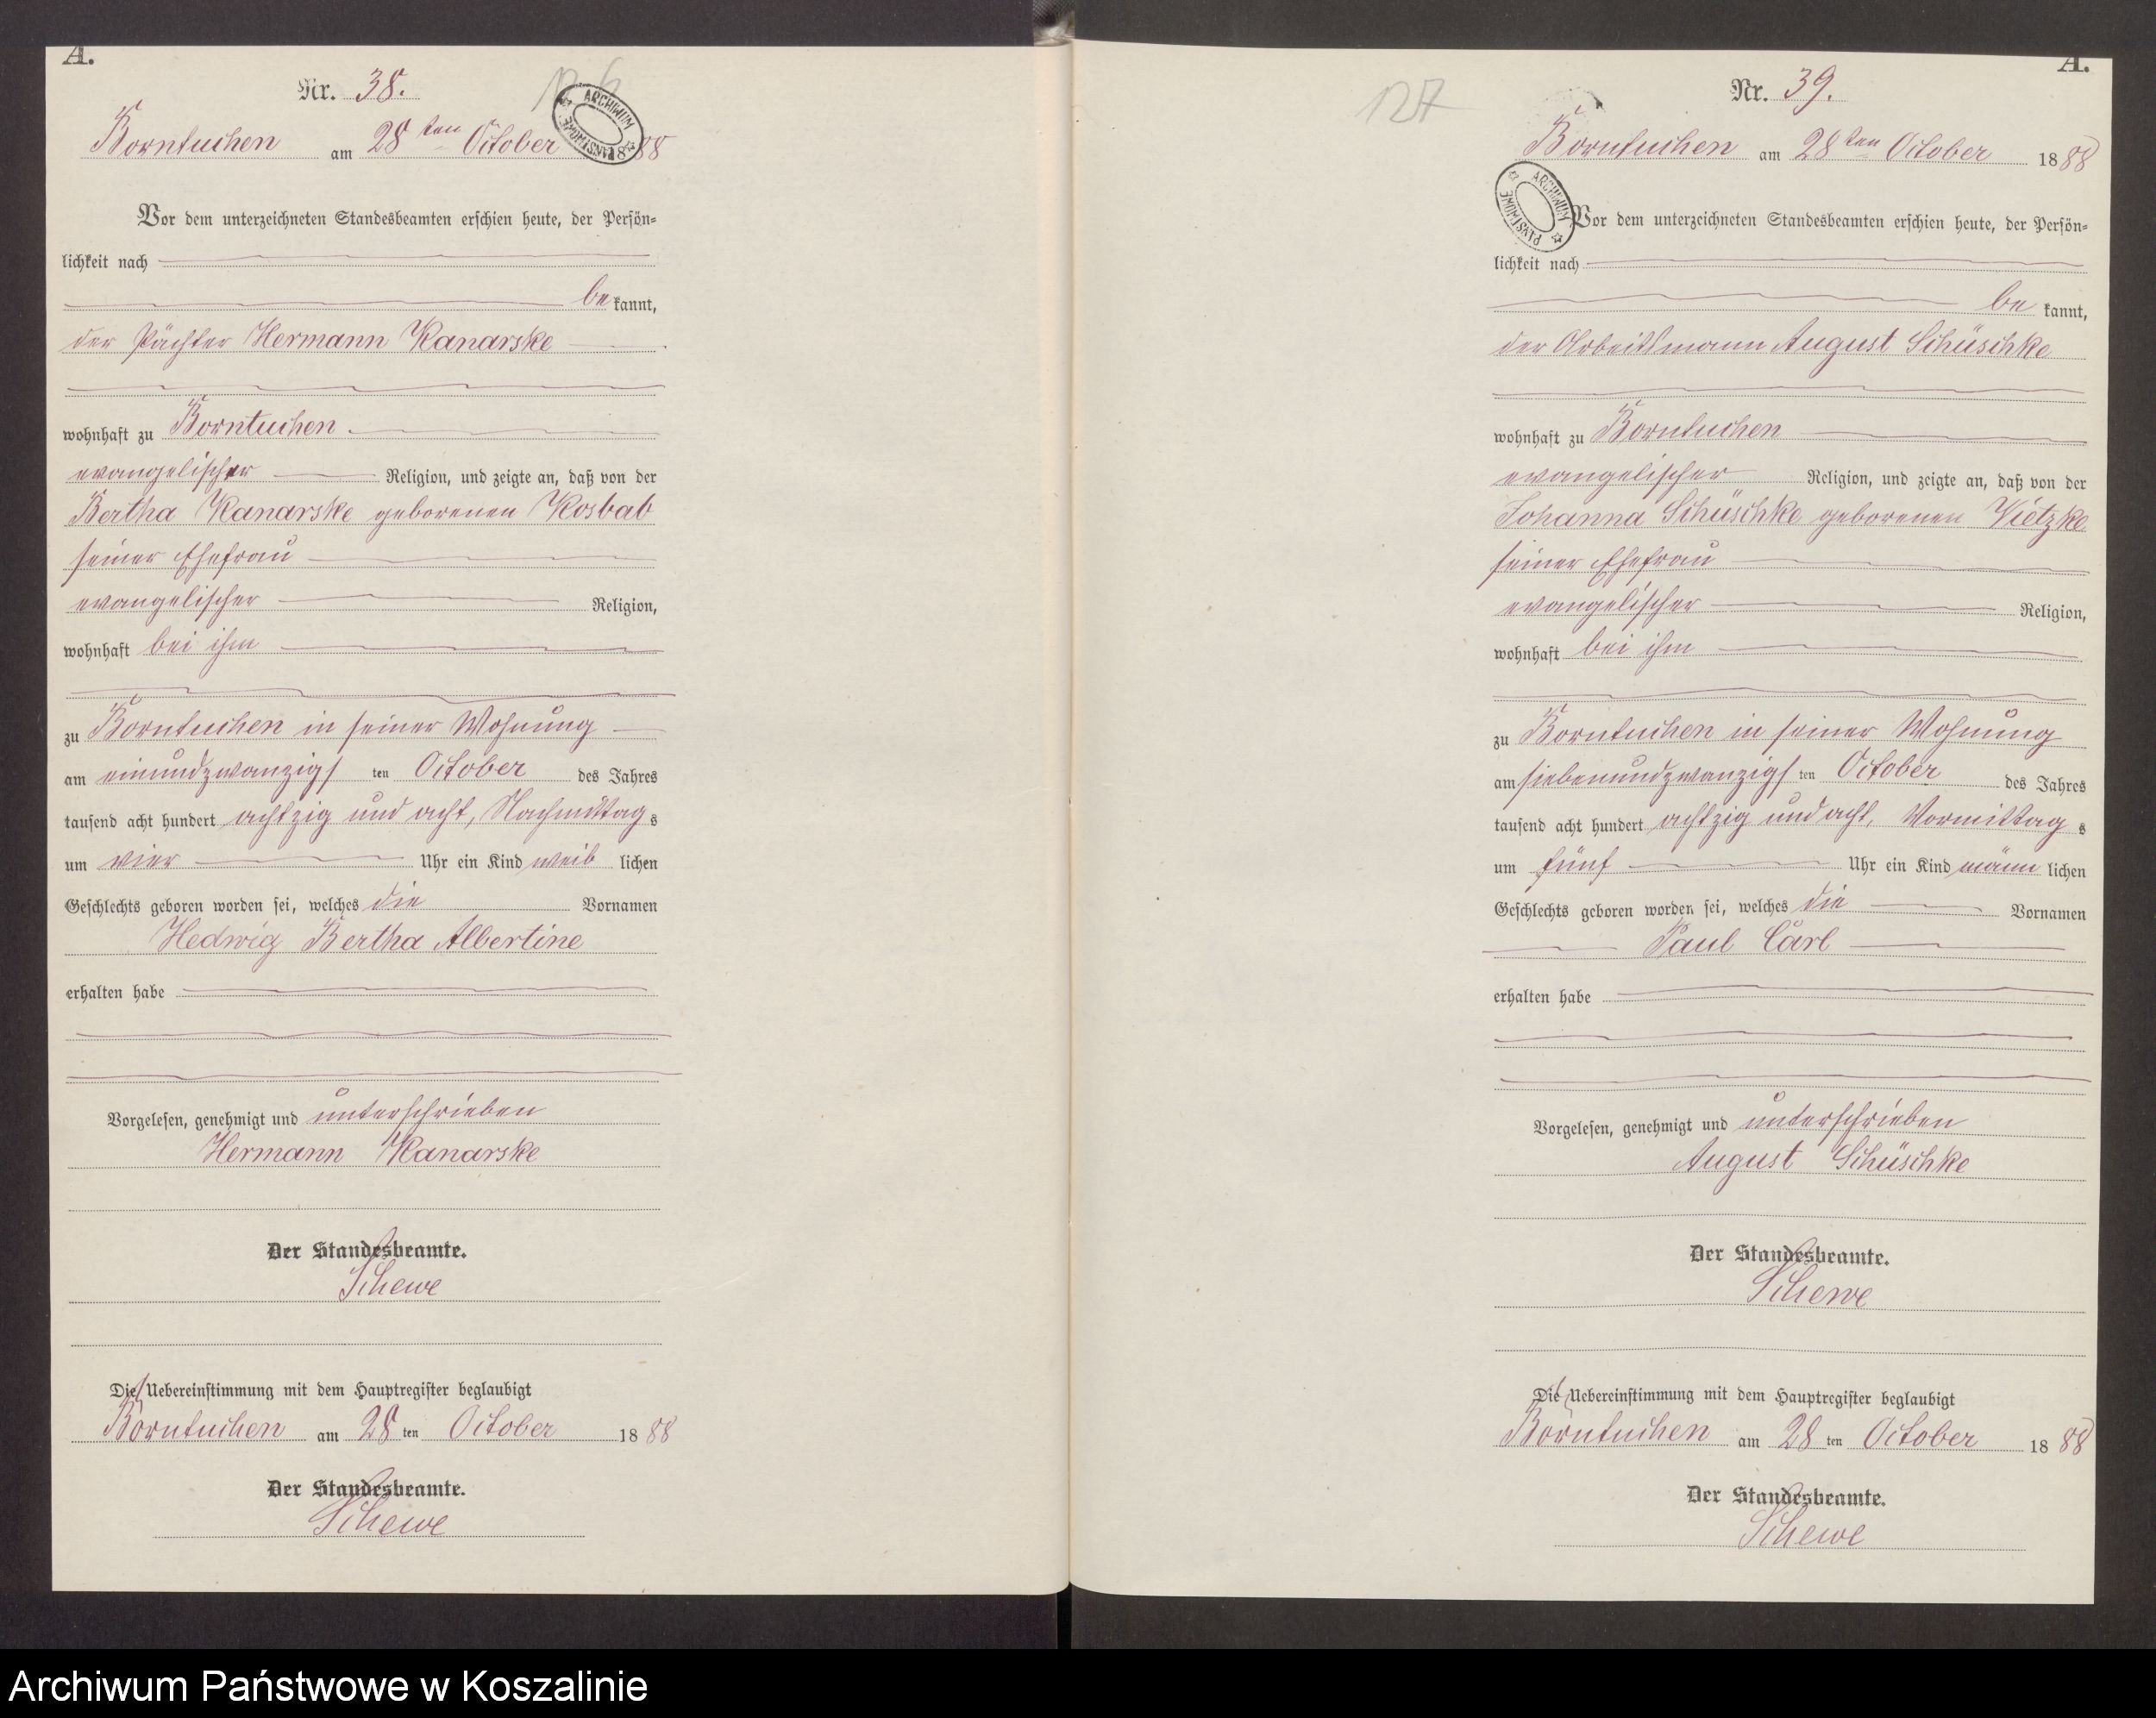 A.
Nr. 38.
126
ARCHIWUM PAŃSTWOWE
Borntuchen am 28ten October 1888
Vor dem unterzeichneten Standesbeamten erschien heute, der Persön=
lichkeit nach
be kannt,
der Pächter Hermann Kanarske
wohnhaft zu Borntuchen
evangelischer Religion, und zeigte an, daß von der
Bertha Kanarske geborenen Kosbab
seiner Ehefrau
evangelischer Religion,
wohnhaft bei ihm
zu Borntuchen in seiner Wohnung
am einundzwanzigs ten October des Jahres
tausend acht hundert achtzig und acht, Nachmittag s
um vier Uhr ein Kind weib lichen
Geschlechts geboren worden sei, welches die Vornamen
Hedwig Bertha Albertine
erhalten habe
Vorgelesen, genehmigt und unterschrieben
Hermann Kanarske
Der Standesbeamte.
Schewe
Die Uebereinstimmung mit dem Hauptregister beglaubigt
Borntuchen am 28 ten October 1888
Der Standesbeamte.
Schewe
A.
127
Nr. 39.
Borntuchen am 28ten October 1888
ARCHIWUM PAŃSTWOWE
Vor dem unterzeichneten Standesbeamten erschien heute, der Persön=
lichkeit nach
be kannt,
der Arbeitsmann August Schüschke
wohnhaft zu Borntuchen
evangelischer Religion, und zeigte an, daß von der
Johanna Schüschke geborenen Vietzke
seiner Ehefrau
evangelischer Religion,
wohnhaft bei ihm
zu Borntuchen in seiner Wohnung
am siebenundzwanzigs ten October des Jahres
tausend acht hundert achtzig und acht, Vormittag s
um fünf Uhr ein Kind männ lichen
Geschlechts geboren worden sei, welches die Vornamen
Paul Carl
erhalten habe
Vorgelesen, genehmigt und unterschrieben
August Schüschke
Der Standesbeamte.
Schewe
Die Uebereinstimmung mit dem Hauptregister beglaubigt
Borntuchen am 28 ten October 1888
Der Standesbeamte.
Schewe
Archiwum Państwowe w Koszalinie